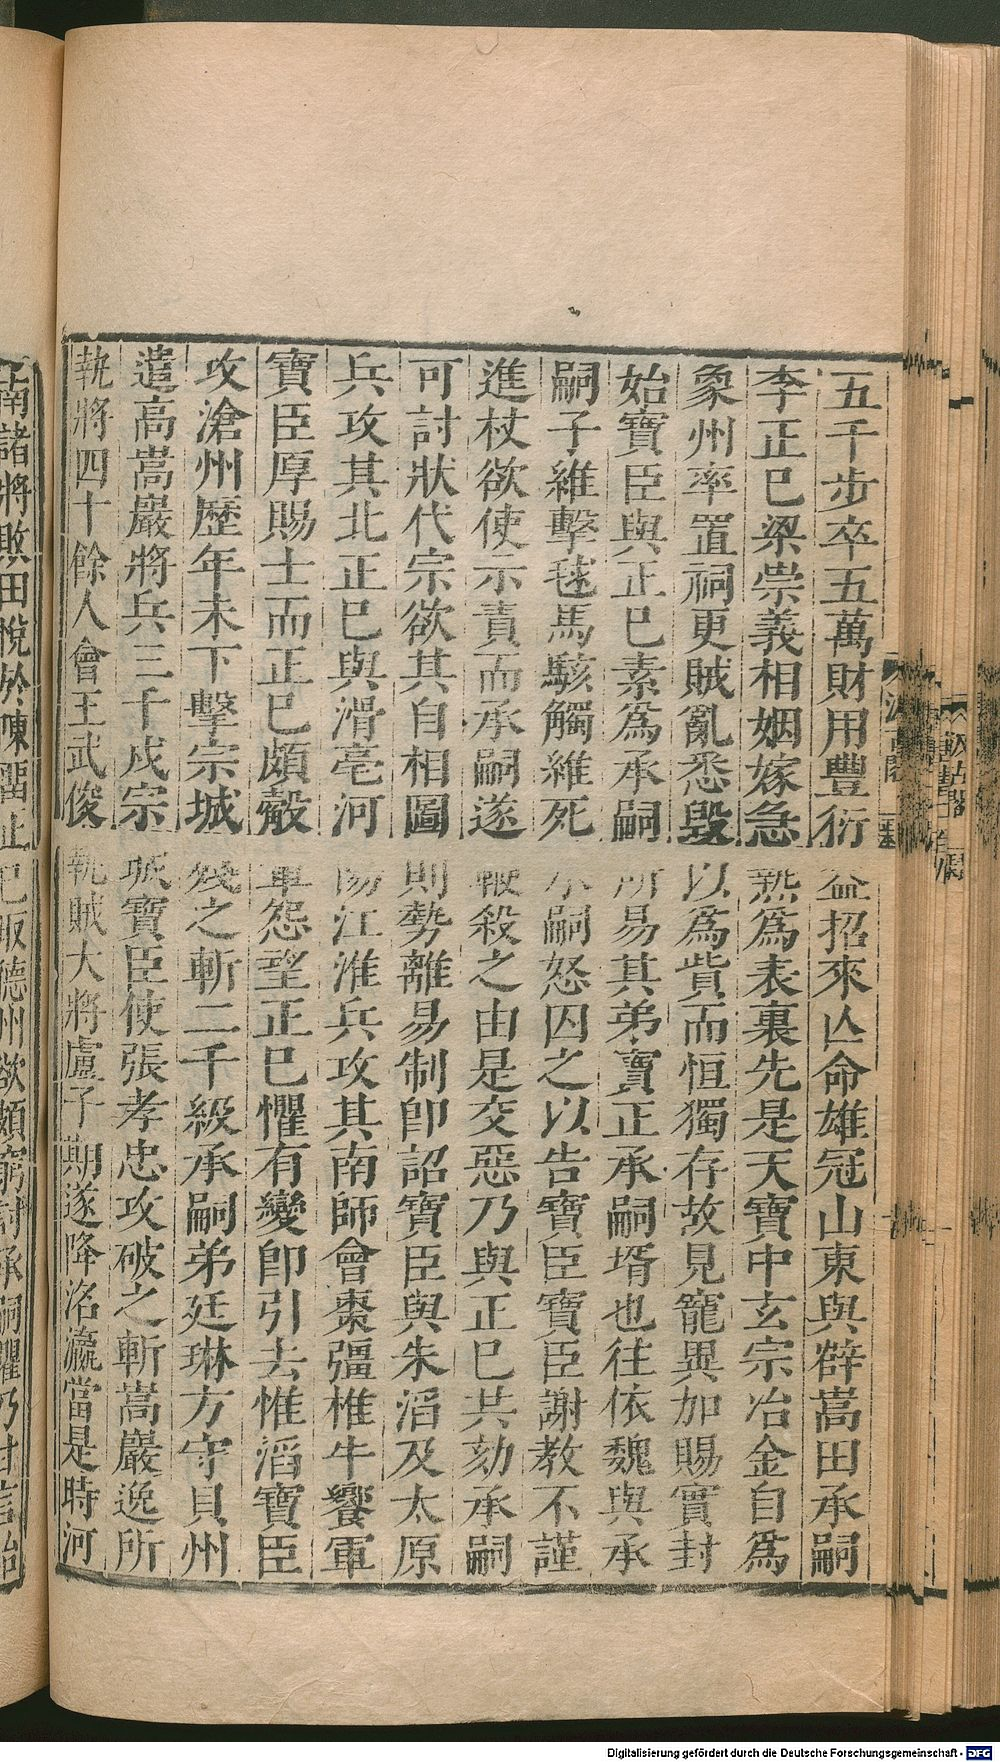 五千步卒五萬財用豐衍益招來亾命雄冠山東與薛嵩田承嗣
李正巳梁崇義相姻嫁急熱爲表裏先是天寶中玄宗冶金自爲
象州率置祠更賊亂悉毀以爲貲而恒獨存故見寵異加賜實封
始寶臣與正巳素爲承嗣所易其弟寶正承嗣壻也往依魏與承
嗣子維擊毬馬駭觸維死承嗣怒囚之以告寶臣寶臣謝教不謹
進杖欲使示責而承嗣遂鞭殺之由是交惡乃與正巳共劾承嗣
可討狀代宗欲其自相圖則勢離易制卽詔寶臣與朱滔及太原
兵攻其北正巳與滑亳河陽江淮兵攻其南師會棗彊椎牛饗軍
寶臣厚賜士而正巳頗觳軍怨望正巳懼有變卽引去惟滔寶臣
攻滄州歷年未下擊宗城殘之斬二千級承嗣弟廷琳方守貝州
遣高嵩巖將兵三千戍宗城寶臣使張孝忠攻破之斬嵩巖逸所
執將四十餘人會王武俊執賊大將盧子期遂降洺瀛當是時河
南諸將敗田悅於陳畱正巳取德州欲頗窮討承嗣懼乃甘言紿
Digitalisierung gefördert durch die Deutsche Forschungsgemeinschaft - DFG